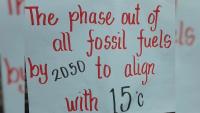 The phase out of
all fossil fuels
by 2050 to align
with 15°c